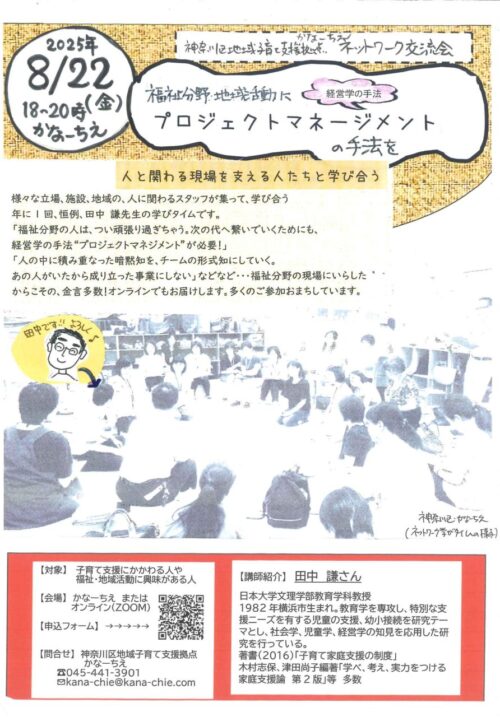 2025年
8/22
(金)
18~20時
かなーちえ
神奈川区地域子育て支援拠点 かなーちえ ネットワーク交流会
福祉分野、地域活動に
経営学の手法
プロジェクトマネージメント
の手法を
人と関わる現場を支える人たちと学び合う
様々な立場、施設、地域の、人に関わるスタッフが集って、学び合う
年に1回、恒例、田中 謙先生の学びタイムです。
「福祉分野の人は、つい頑張り過ぎちゃう。次の代へ繋いでいくためにも、
経営学の手法“プロジェクトマネジメント”が必要!」
「人の中に積み重なった暗黙知を、チームの形式知にしていく。
あの人がいたから成り立った事業にしない」などなど・・・福祉分野の現場にいらした
からこその、金言多数!オンラインでもお届けします。多くのご参加おまちしています。
田中です!!よろしく♪
神奈川区かなーちえ
【対象】 子育て支援にかかわる人や
福祉・地域活動に興味がある人
【会場】 かなーちえ または
オンライン(ZOOM)
【申込フォーム】 →→→→→
【問合せ】 神奈川区地域子育て支援拠点
かなーちえ
☎045-441-3901
✉kana-chie@kana-chie.com
【講師紹介】 田中 謙さん
日本大学文理学部教育学科教授
1982年横浜市生まれ。教育学を専攻し、特別な支
援ニーズを有する児童の支援、幼小接続を研究テー
マとし、社会学、児童学、経営学の知見を応用した研
究を行っている。
著書(2016)「子育て家庭支援の制度」
木村志保、津田尚子編著「学べ、考え、実力をつける
家庭支援論 第2版」等 多数